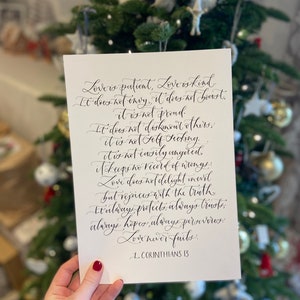 Love is patient, Love is kind.
It does not envy, it does not boast,
it is not proud.
It does not dishonour others,
it is not self-seeking,
it is not easily angered,
it keeps no record of wrongs.
Love does not delight in evil
but rejoices with the truth.
It always protects, always trusts,
always hopes, always perseveres.
Love never fails.
1. CORINTHIANS 13